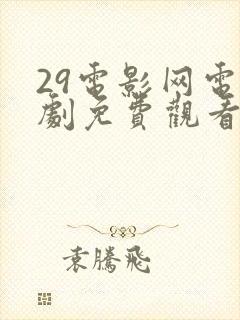 29電影网電
劇免費觀看
袁騰飛